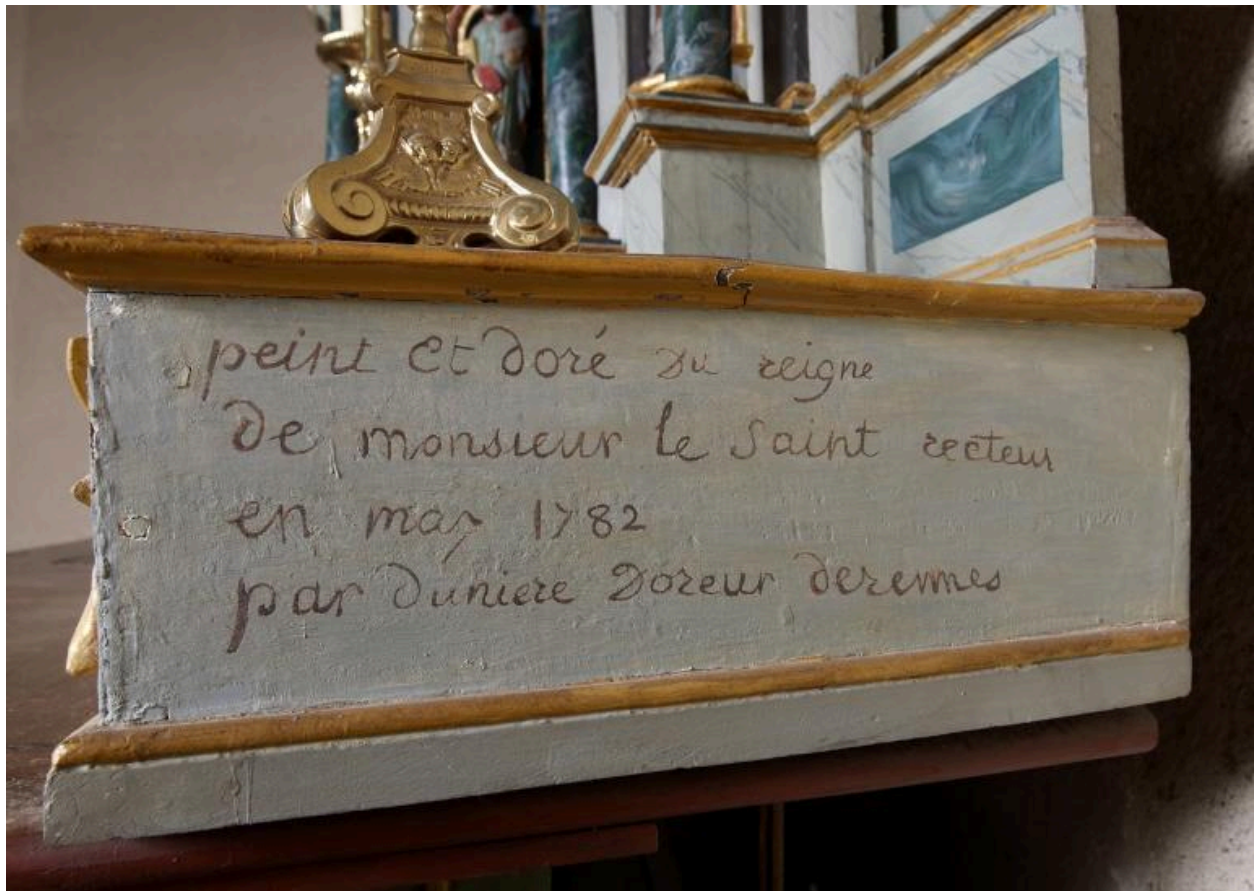 peint et doré du reigne
de monsieur le saint recteur
en may 1782
par duniere doreur derennes